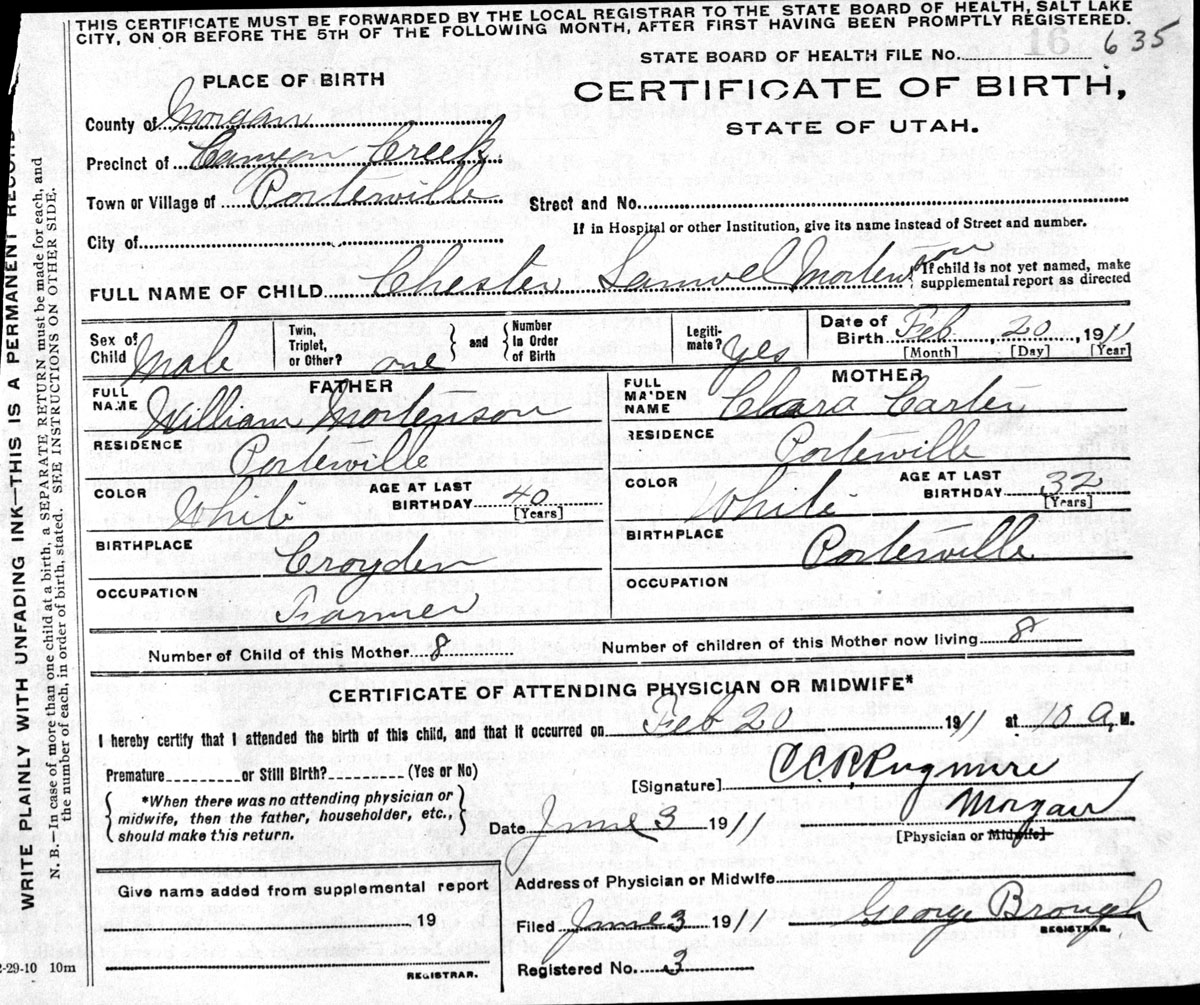 THIS CERTIFICATE MUST BE FORWARDED BY THE LOCAL REGISTRAR TO THE STATE BOARD OF HEALTH, SALT LAKE
CITY, ON OR BEFORE THE 5TH OF THE FOLLOWING MONTH, AFTER FIRST HAVING BEEN PROMPTLY REGISTERED.
16
STATE BOARD OF HEALTH FILE No. 635
PLACE OF BIRTH
CERTIFICATE OF BIRTH,
STATE OF UTAH.
County of Morgan
Precinct of Canyon Creek
Town or Village of Porterville
Street and No.
If in Hospital or other Institution, give its name instead of Street and number.
City of
FULL NAME OF CHILD Chester Samuel Mortenson
If child is not yet named, make
supplemental report as directed
Sex of
Child Male
Twin,
Triplet,
or Other? one
and
Number
In Order
of Birth
Legiti-
mate? Yes
Date of
Birth Feb, 20, 1911
[Month] [Day] [Year]
FATHER
FULL
NAME William Mortenson
RESIDENCE
Porterville
COLOR White
AGE AT LAST
BIRTHDAY 40
[Years]
BIRTHPLACE
Croyden
OCCUPATION
Farmer
MOTHER
FULL
MAIDEN
NAME Clara Carter
RESIDENCE
Porterville
COLOR White
AGE AT LAST
BIRTHDAY 32
[Years]
BIRTHPLACE
Porterville
OCCUPATION
Number of Child of this Mother 8
Number of children of this Mother now living 8
CERTIFICATE OF ATTENDING PHYSICIAN OR MIDWIFE*
I hereby certify that I attended the birth of this child, and that it occurred on Feb 20 1911 at 10 a M.
Premature or Still Birth? (Yes or No)
*When there was no attending physician or
midwife, then the father, householder, etc.,
should make this return.
[Signature]
Morgan
Date June 3 1911
[Physician or Midwife]
Give name added from supplemental report
19
REGISTRAR.
Address of Physician or Midwife
Filed June 3 1911 George Brough
REGISTRAR.
Registered No. 3
2-29-10 10m
WRITE PLAINLY WITH UNFADING INK—THIS IS A PERMANENT RECORD
N. B.—In case of more than one child at a birth, a SEPARATE RETURN must be made for each, and
the number of each, in order of birth, stated. SEE INSTRUCTIONS ON OTHER SIDE.